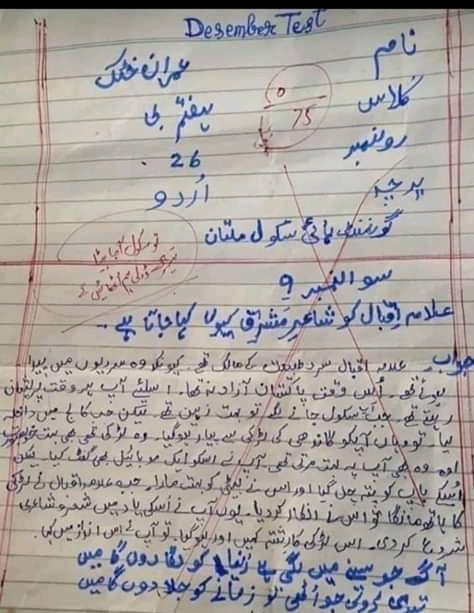 Desember Test
نام عمران خٹک
کلاس ہفتم بی
رولنمبر 26
پرچہ اُردو
0
75
گورنمنٹ ہائی سکول ملتان
تو سکول آجا بیٹا
سوالنمبر 9
علامہ اقبال کو شاعرِ مَشرق کیوں کہا جاتا ہے۔
جواب۔ علامہ اقبال سرد طبیعت کے مالک تھے۔ کیونکہ وہ سردیوں میں پیدا
ہوئے تھے۔ اُس وقت پاکستان آزاد نہ تھا۔ اسلئے آپ ہر وقت پریشان
رہتے تھے۔ جب سکول جانے لگے تو بہت ذہین تھے۔ لیکن جب کالج میں داخلہ
لیا۔ تو وہاں آپکو گاندھی کی لڑکی سے پیار ہوگیا۔ وہ لڑکی تھی بہت خوبصورت
اوہ وہ بھی آپ پہ بہت مرتی تھی۔ آپ نے اسکو ایک موبائیل بھی گفٹ کیا۔ لیکن
اُسکے باپ کو پتہ چل گیا اور اس نے بیٹی کو بہت مارا۔ جب علامہ اقبال نے لڑکی
کا ہاتھ مانگا تو اس نے انکار کردیا۔ یوں آپ نے اسکی یاد میں شعر و شاعری
شروع کردی۔ اس لڑکی کا رشتہ کہیں اور ہوگیا۔ تو آپ نے اس انداز میں کہا۔
آگ جو سینے میں لگی ہے زمانے کو لگا دوں گا میں
تیری ڈولی جو اٹھی تو زمانے کو جلا دوں گا میں